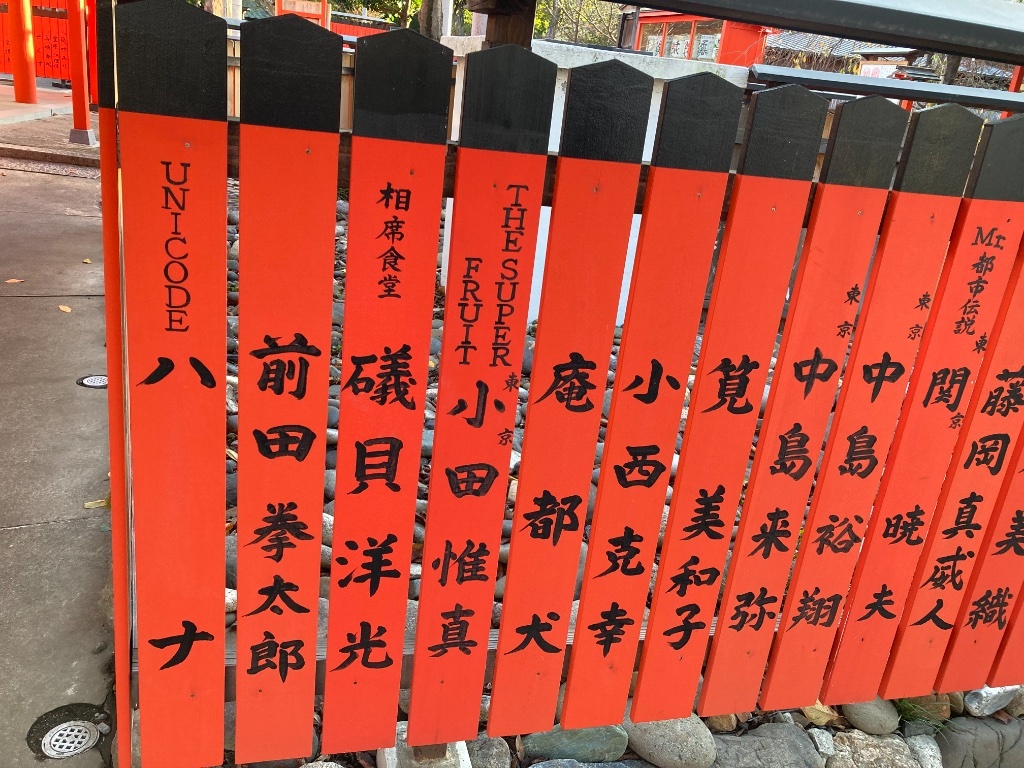 UNICODE
ハナ
前田拳太郎
相席食堂
礒貝洋光
THE SUPER
FRUIT
小田惟真
東京
庵都犬
小西克幸
筧美和子
中島来弥
東京
中島裕翔
東京
関暁夫
Mr.都市伝説
東京
藤岡真威人
美織